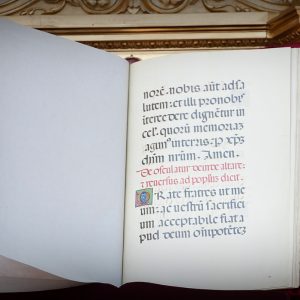 norē. nobis aūt ad sa
lutem: et illi pro nobis
intercedere dignētur in
cel. quorū memoriaȝ
agim⁹ in terris. p xp̄ȝ
dn̄m nr̄um. Amen.
De osculatur deinde altare:
et reversus ad populū dicit.
Orate fratres ut me
um: ac vestrū sacrifici
um acceptabile fiat a
pud deum om̄ipotētēȝ